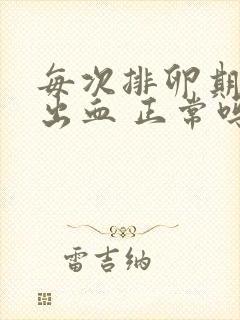 每次排卵期
出血 正常
雷吉纳